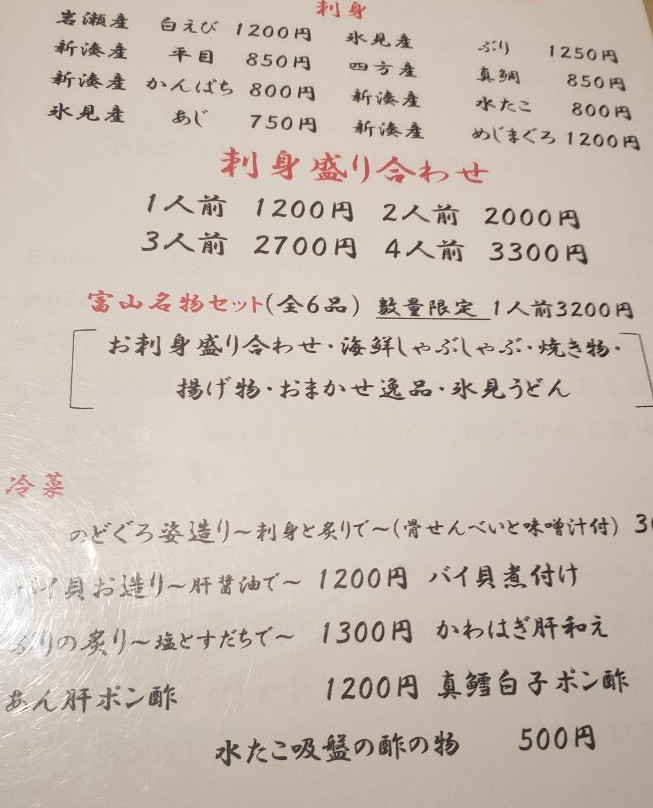 刺身
岩瀬産 白えび 1200円 氷見産 ぶり 1250円
新湊産 平目 850円 四方産 真鯛 850円
新湊産 かんぱち 800円 新湊産 水たこ 800円
氷見産 あじ 750円 新湊産 めじまぐろ 1200円
刺身盛り合わせ
1人前 1200円 2人前 2000円
3人前 2700円 4人前 3300円
富山名物セット(全6品) 数量限定 1人前3200円
お刺身盛り合わせ・海鮮しゃぶしゃぶ・焼き物・
揚げ物・おまかせ逸品・氷見うどん
冷菜
のどぐろ姿造り～刺身と炙りで～(骨せんべいと味噌汁付)
バイ貝お造り～肝醤油で～ 1200円 バイ貝煮付け
ぶりの炙り～塩とすだちで～ 1300円 かわはぎ肝和え
あん肝ポン酢 1200円 真鱈白子ポン酢
水たこ吸盤の酢の物 500円